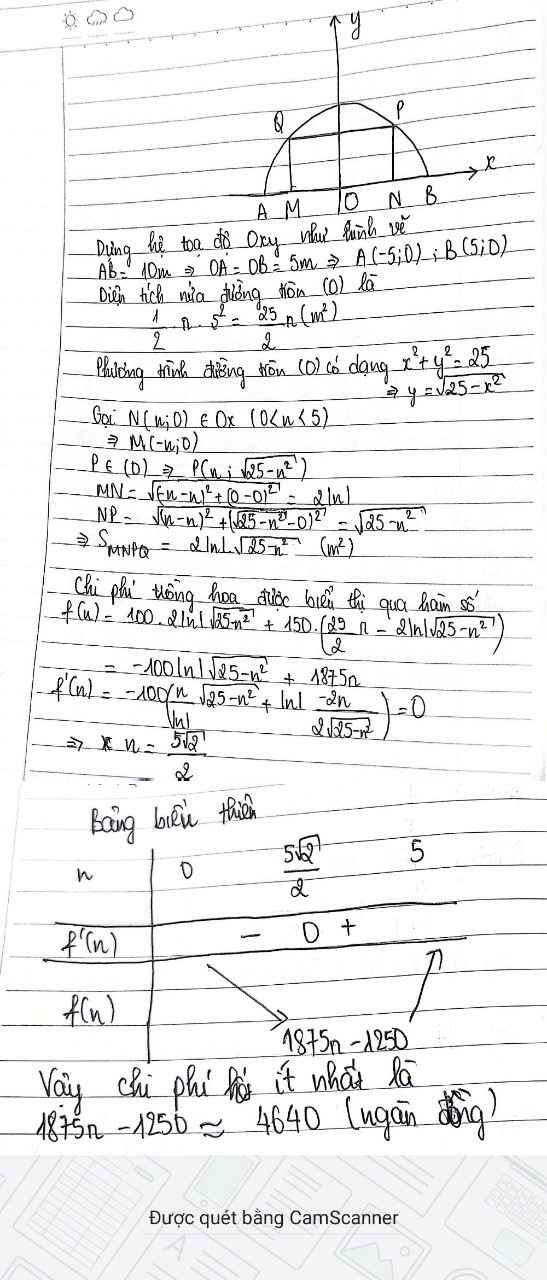 y
Q
P
x
A M O N B
Dựng hệ toạ độ Oxy như hình vẽ
AB = 10m ⇒ OA = OB = 5m ⇒ A(-5;0) ; B(5;0)
Diện tích nửa đường tròn (O) là
1/2 π . 5² = 25/2 π (m²)
Phương trình đường tròn (O) có dạng x² + y² = 25
⇒ y = √(25-x²)
Gọi N(n;0) ∈ Ox (0<n<5)
⇒ M(-n;0)
P ∈ (O) ⇒ P(n; √(25-n²))
MN = √((-n-n)² + (0-0)²) = 2|n|
NP = √((n-n)² + (√(25-n²)-0)²) = √(25-n²)
⇒ S_MNPQ = 2|n|√(25-n²) (m²)
Chi phí trồng hoa được biểu thị qua hàm số
f(n) = 100.2|n|√(25-n²) + 150.(25/2 π - 2|n|√(25-n²))
= -100|n|√(25-n²) + 1875π
f'(n) = -100(n/|n| √(25-n²) + |n| -2n/(2√(25-n²))) = 0
⇒ n = 5√2/2
Bảng biến thiên
n 0 5√2/2 5
f'(n) - 0 +
f(n)
1875π - 1250
Vậy chi phí ít nhất là
1875π - 1250 ≈ 4640 (ngàn đồng)
Được quét bằng CamScanner